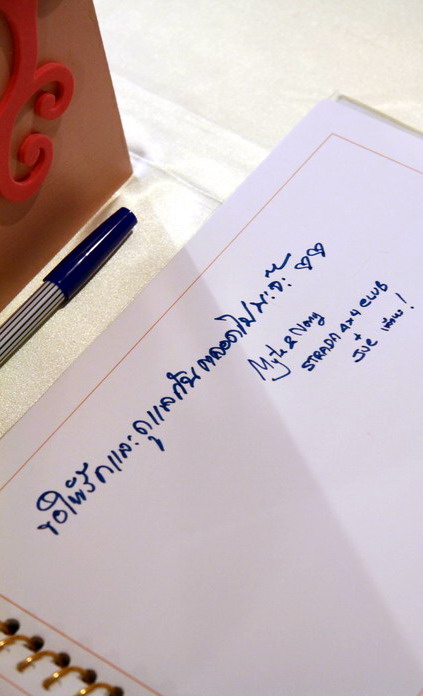 ขอให้รักและดูแลกันตลอดไปนะจ๊ะ ♡♡
Myth & Nong
STRADA 4x4 CLUB
+